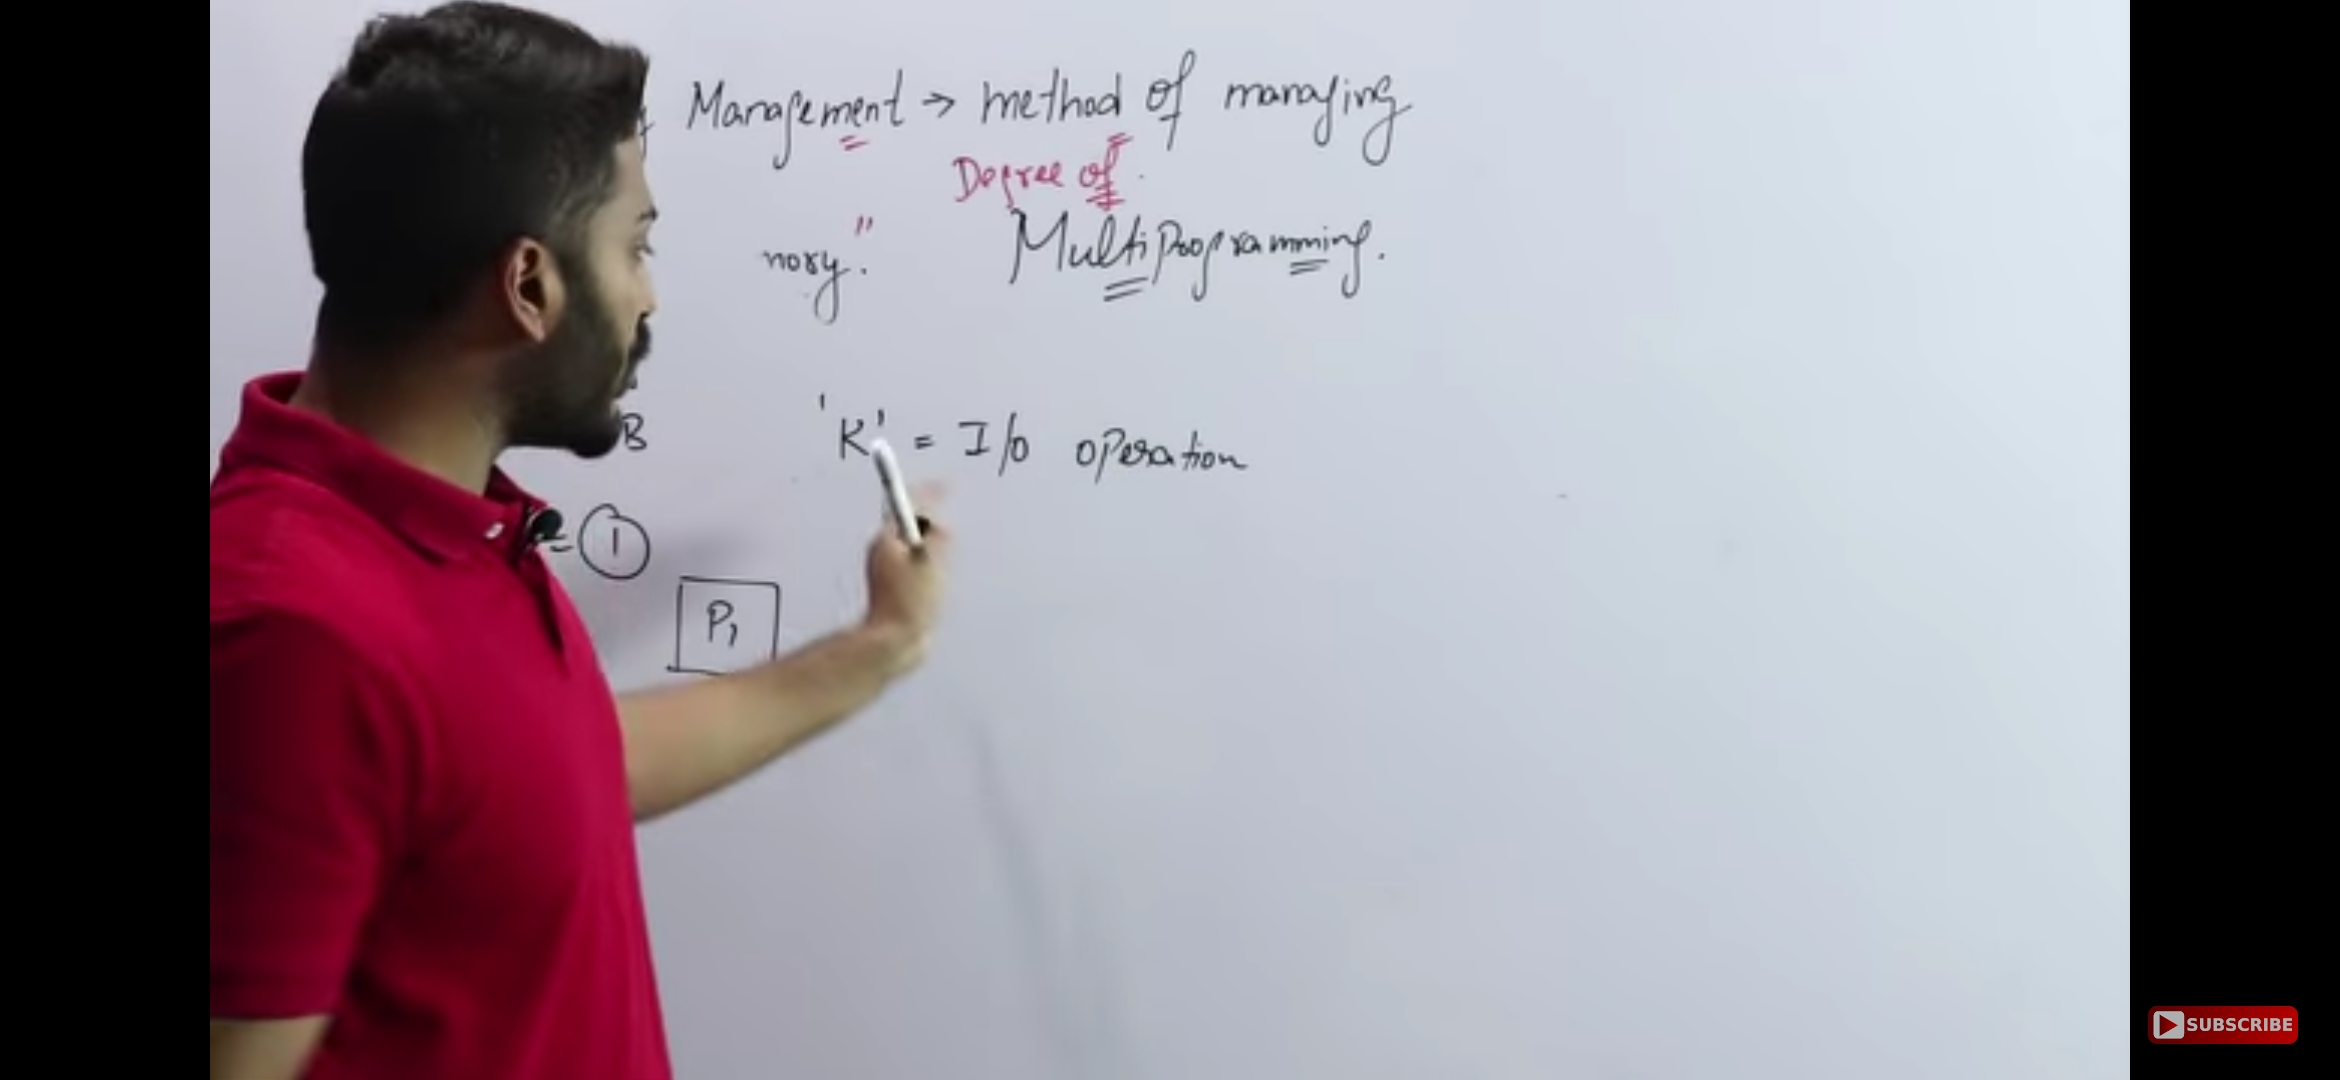 Management → method of managing
Degree of
mory."
Multiprogramming.
B
'K' = I/O operation
= 1
P1
SUBSCRIBE